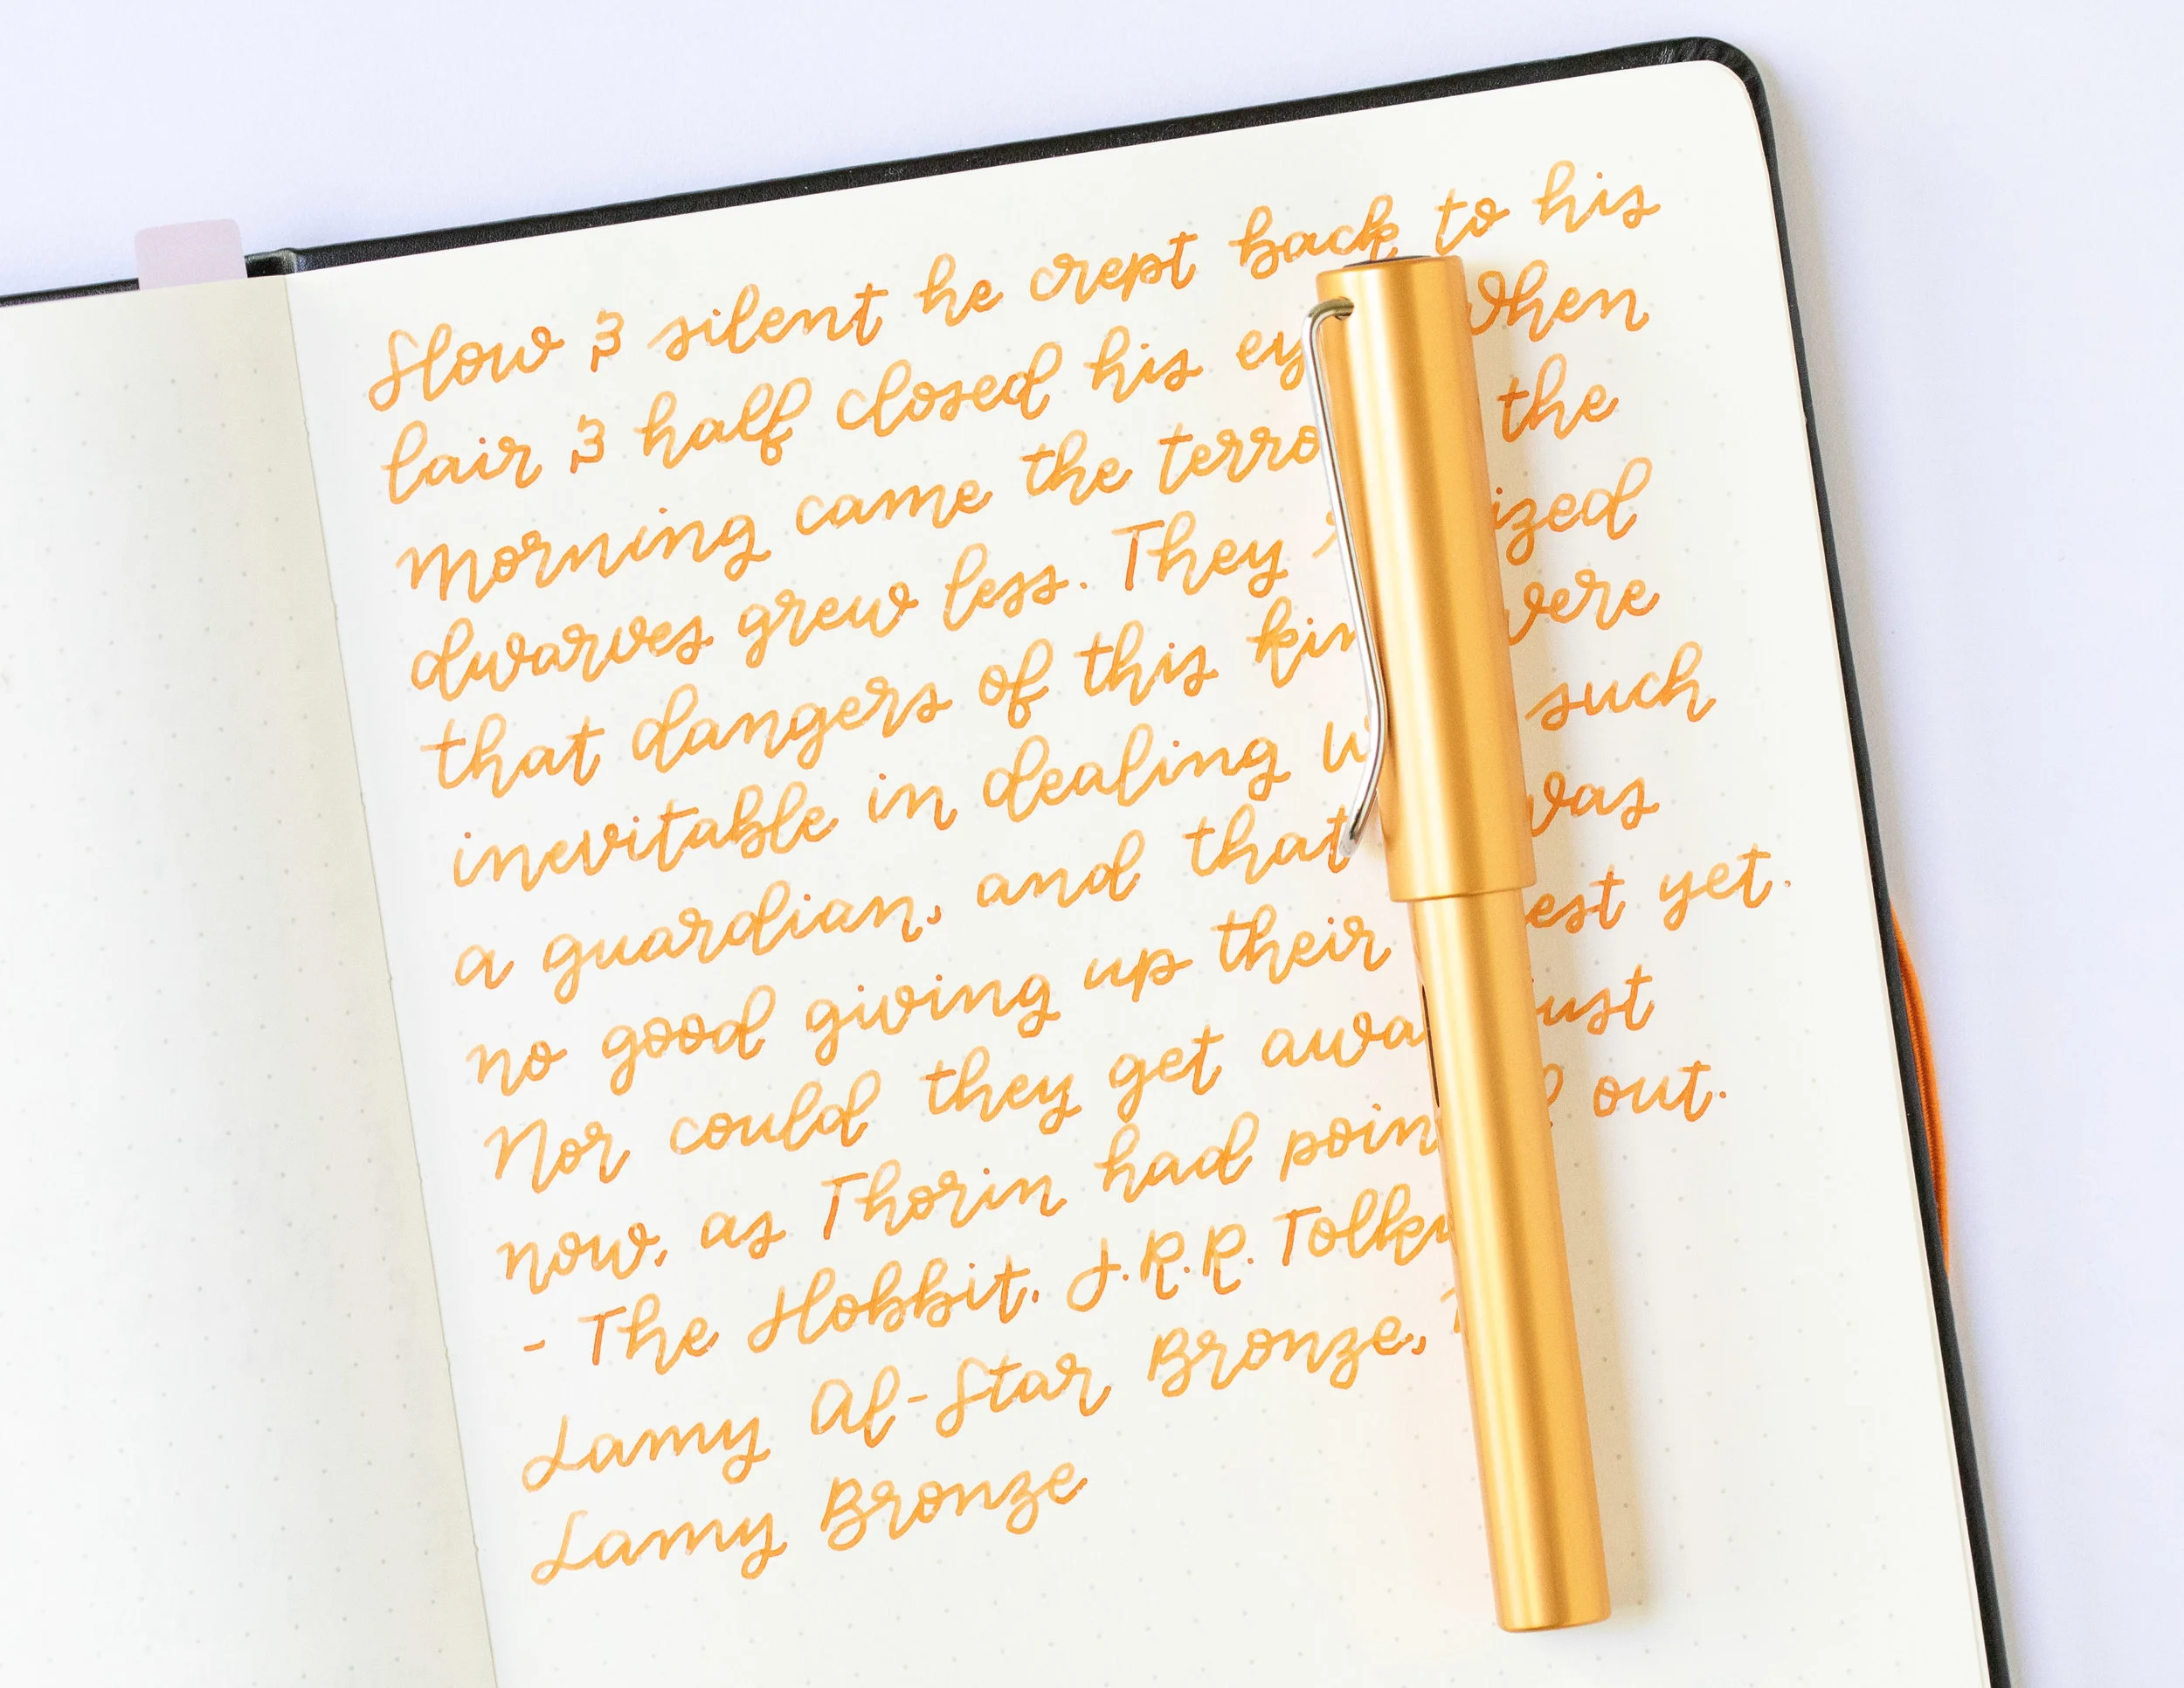 Slow & silent he crept back to his
lair & half closed his When
morning came the the
dwarves grew less. They
that dangers of this were
inevitable in dealing such
a guardian, and that was
no good giving up their yet.
Nor could they get just
now, as Thorin had out.
- The Hobbit, J.R.R.
Lamy Al-Star Bronze,
Lamy Bronze